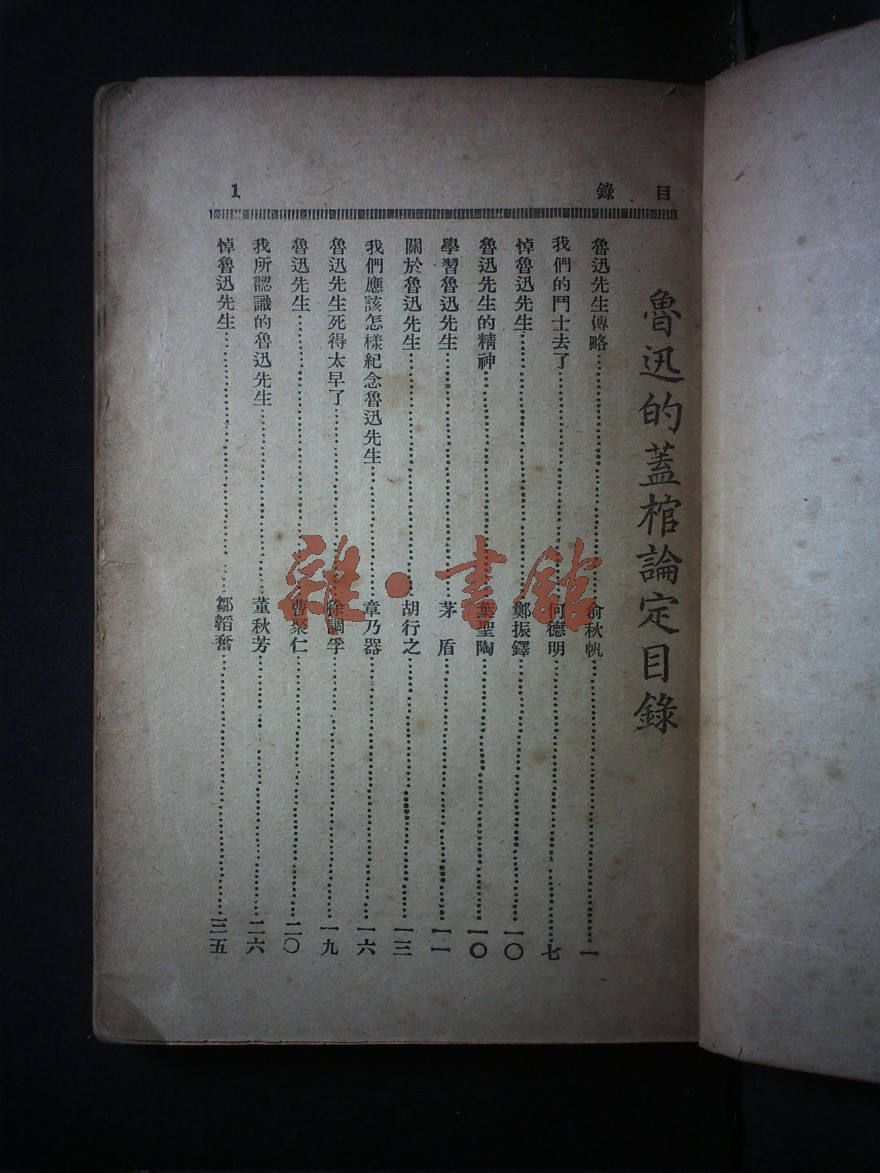 目錄
1
魯迅的蓋棺論定目錄
魯迅先生傳略……俞秋帆……一
我們的鬥士去了……何德明……七
悼魯迅先生……鄭振鐸……一〇
魯迅先生的精神……葉聖陶……一〇
學習魯迅先生……茅盾……一一
關於魯迅先生……胡行之……一三
我們應該怎樣紀念魯迅先生……章乃器……一六
魯迅先生死得太早了……徐調孚……一九
魯迅先生……曹聚仁……二〇
我所認識的魯迅先生……董秋芳……二六
悼魯迅先生……鄒韜奮……三五
雜·書館